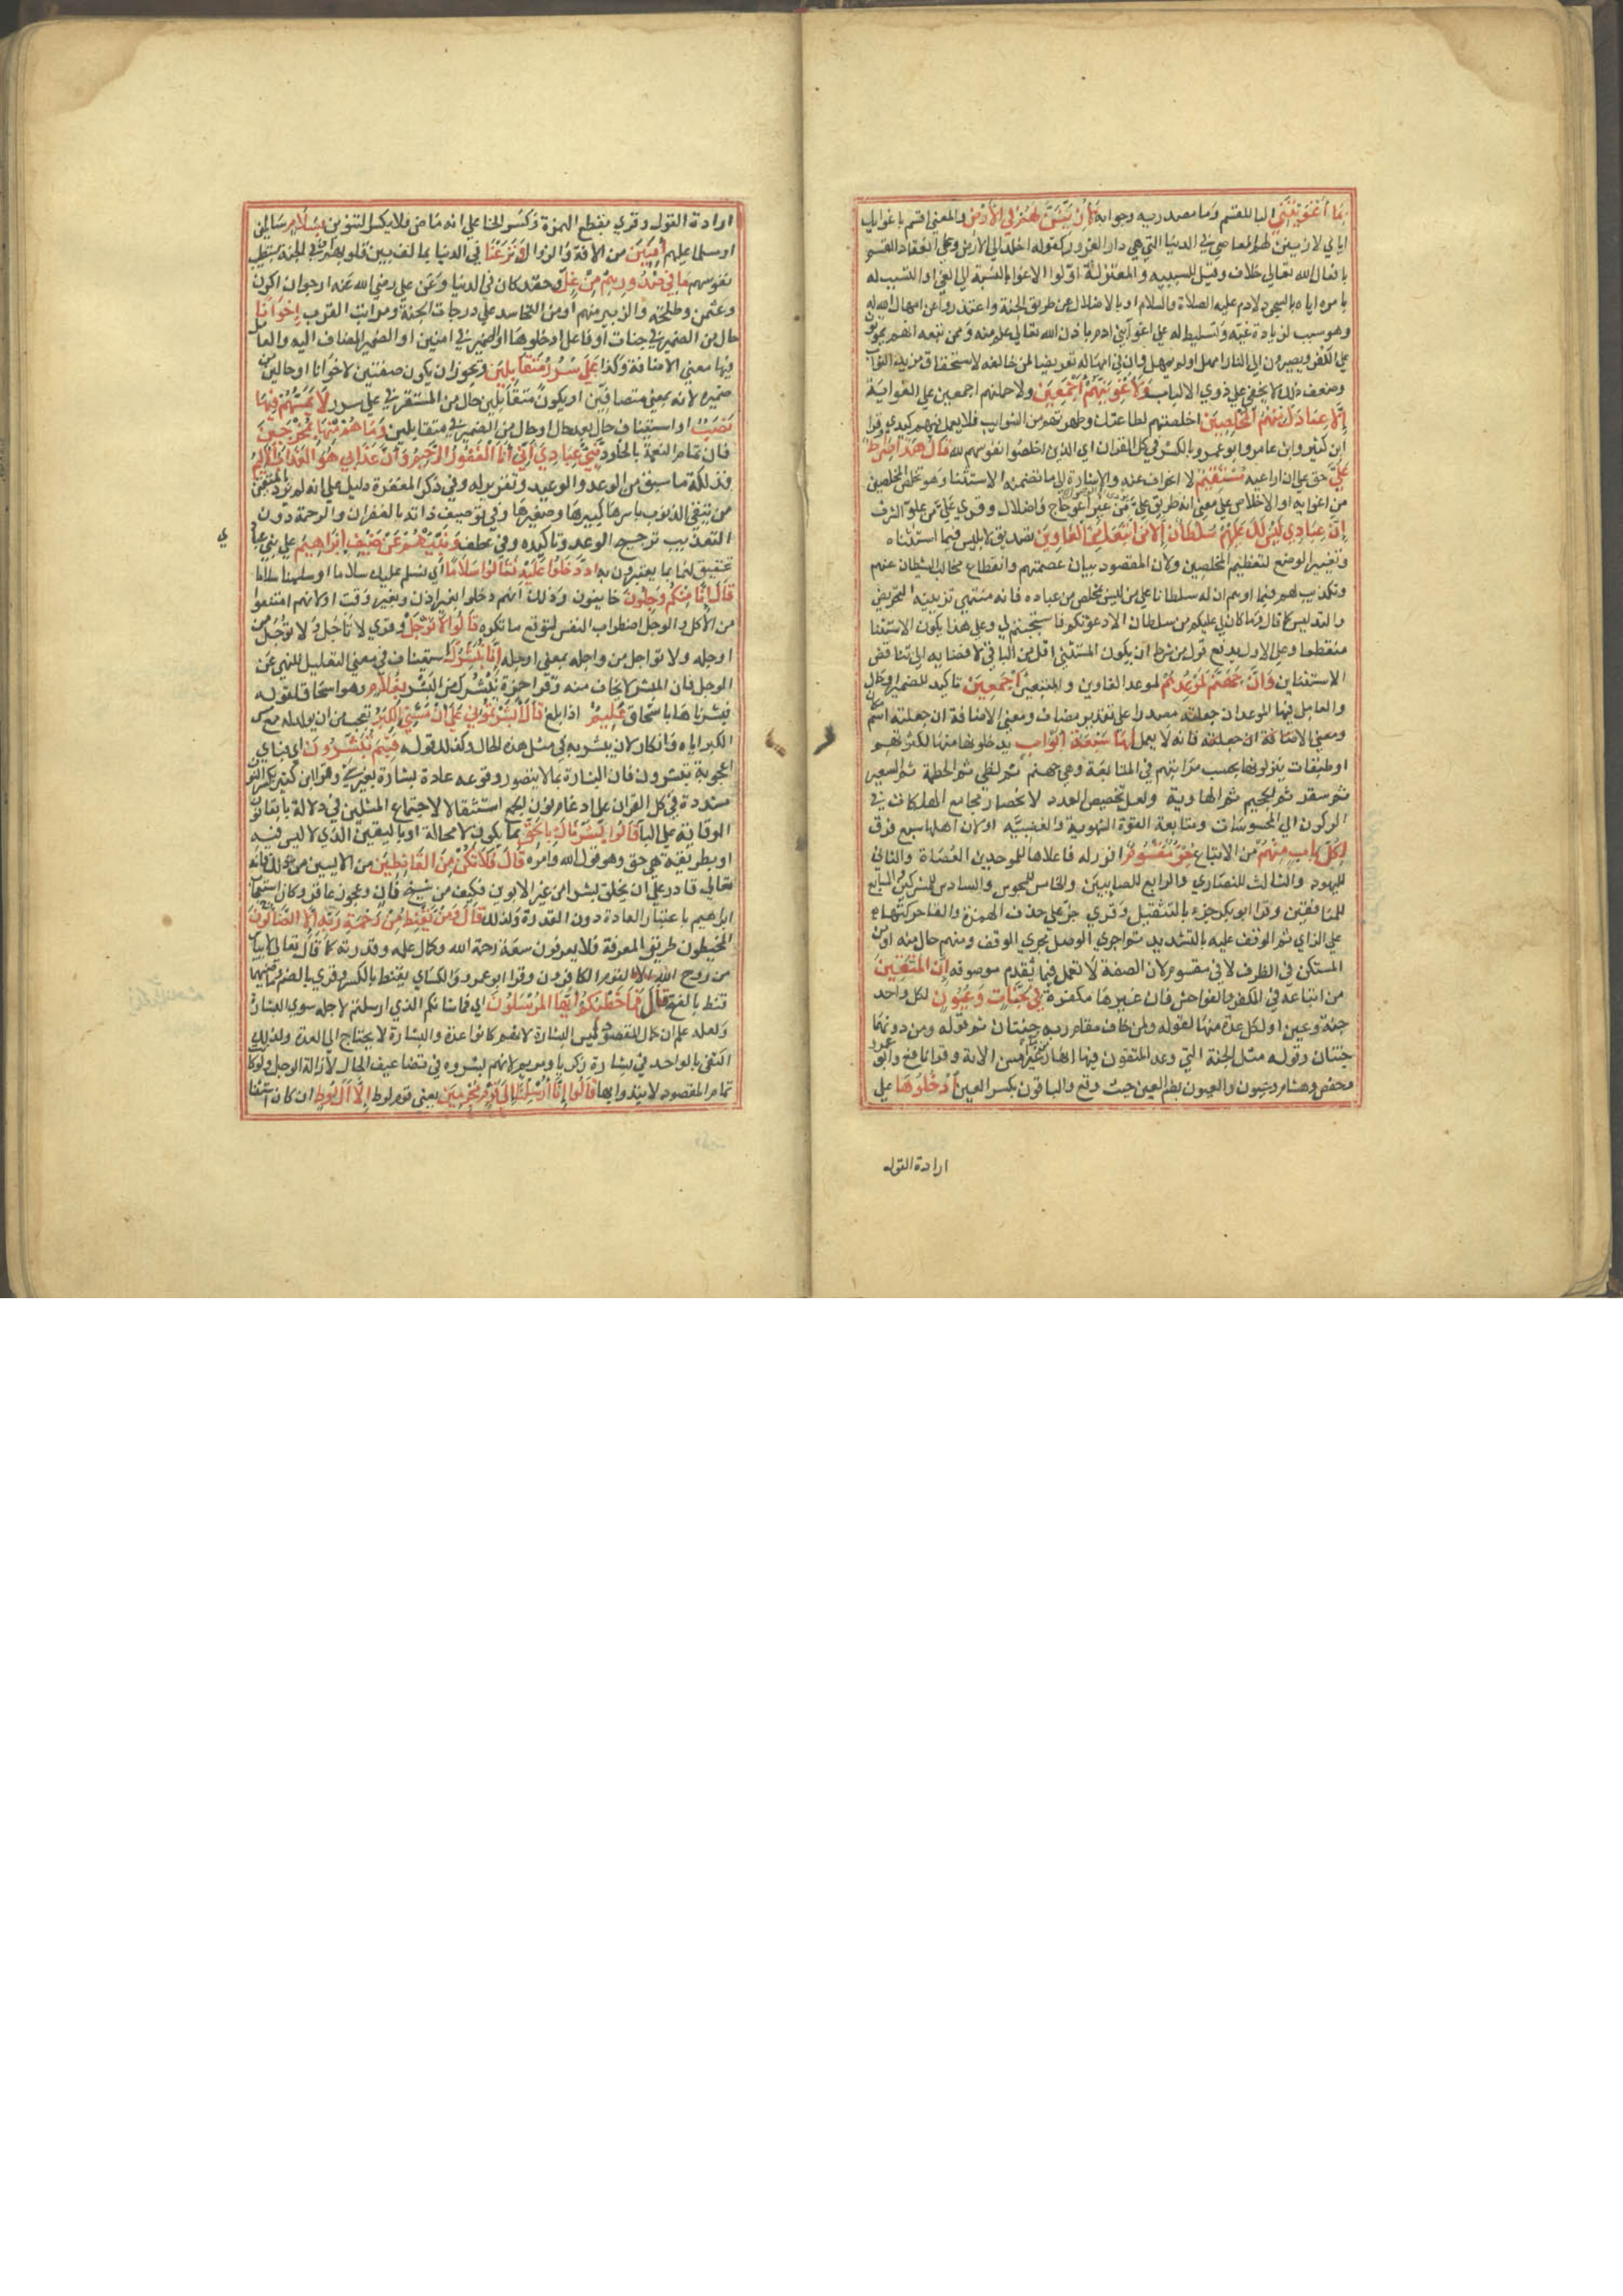 بما أغويتني الباء للقسم وما مصدرية وجوابه لأزينن لهم في الأرض والمعنى اقسم باغوايك
اياي لازينن لهم المعاصي في الدنيا التي هي دار الغرور كقوله اخلد الى الارض وفي انعقاد القسم
بافعال الله تعالى خلاف وقيل للسببيه والمعتزلة اولوا الاغوا بالنسبة الى الغي او التسبب له
بامره اياه بالسجود لادم عليه الصلاة والسلام او بالاضلال عن طريق الجنة واعتذروا عن امهال الله له
وهو سبب لزيادة غيه وتسليط له على اغوا بني ادم بان الله تعالى علم منه وممن تبعه انهم يموتون
على الكفر ويصيرون الى النار امهل اولم يمهل وان في امهاله تعريضا لمن خالفه لاستحقاق مزيد الثواب
وضعف ذلك لا يخفى على ذوي الالباب ولأغوينهم أجمعين ولاحملنهم اجمعين على الغواية
إلا عبادك منهم المخلصين اخلصتهم لطاعتك وطهرتهم من الشوايب فلا يعمل فيهم كيدي وقرا
ابن كثير وابن عامر وابو عمرو بالكسر في كل القران اي الذين اخلصوا نفوسهم لله قال هذا صراط
علي حق علي ان اراعيه مستقيم لا انحراف عنه والاشارة الى ما تضمنه الاستثنا وهو تخلص المخلصين
من اغوايه او الاخلاص على معنى انه طريق علي من غير اعوجاج وضلال وقري علي من علو الشرف
إن عبادي ليس لك عليهم سلطان إلا من اتبعك من الغاوين تصديق لابليس فيما استثناه
وتغيير الوضع لتعظيم المخلصين ولان المقصود بيان عصمتهم وانقطاع مخالب الشيطان عنهم
وتكذيب له فيما اوهم ان له سلطانا على من ليس بمخلص من عباده فانه منتهى تزيينه التحريض
والتدليس كما قال وما كان لي عليكم من سلطان الا ان دعوتكم فاستجبتم لي وعلى هذا يكون الاستثنا
منقطعا وعلى الاول يدفع قول من شرط ان يكون المستثنى اقل من الباقي لافضايه الى تناقض
الاستثناين وإن جهنم لموعدهم لموعد الغاوين والمتبعين أجمعين تاكيد للضمير او حال
والعامل فيها الموعد ان جعلته مصدرا على تقدير مضاف ومعنى الاضافة ان جعلته اسم مكان
ومعنى الاضافة ان جعلته فانه لا يعمل لها سبعة أبواب يدخلون منها لكثرتهم
او طبقات ينزلونها بحسب مراتبهم في المتابعة وهي جهنم ثم لظى ثم الحطمة ثم السعير
ثم سقر ثم الجحيم ثم الهاوية ولعل تخصيص العدد لانحصار مجامع المهلكات في
الركون الى المحسوسات ومتابعة القوة الشهوية والغضبيه اولان اهلها سبع فرق
لكل باب منهم من الاتباع جزء مقسوم افرز له فاعلاها للموحدين العصاة والثاني
لليهود والثالث للنصارى والرابع للصابيين والخامس للمجوس والسادس للمشركين والسابع
للمنافقين وقرا ابو بكر جزء بالتثقيل وقري جز على حذف الهمزة والقا حركتها
على الزاي ثم الوقف عليه بالتشديد ثم اجري الوصل مجرى الوقف ومنهم حال منه او من
المستكن في الظرف لا في مقسوم لان الصفة لا تعمل فيما تقدم موصوفه إن المتقين
من اتباعه في الكفر والفواحش فان غيرها مكفرة في جنات وعيون لكل واحد
جنة وعين او لكل عدة منها لقوله ولمن خاف مقام ربه جنتان ثم قوله ومن دونهما
جنتان وقوله مثل الجنة التي وعد المتقون فيها انهار من ماء غير اسن الاية وقرا نافع وابو عمرو
وحفص وهشام وعيون والعيون بضم العين حيث وقع والباقون بكسر العين أدخلوها على
ارادة القول
ارادة القول وقري بقطع الهمزة وكسر الخا على انه ماض فلا يكسر التنوين بسلام سالمين
او مسلما عليهم آمنين من الافة والزوال ونزعنا في الدنيا بما الف بين قلوبهم او في الجنة بتطييب
نفوسهم ما في صدورهم من غل وحقد كان في الدنيا وعن علي رضي الله عنه ارجو ان اكون
وعثمن وطلحة والزبير منهم او من التحاسد على درجات الجنة ومراتب القرب إخوانا
حال من الضمير في جنات او فاعل ادخلوها او الضمير في امنين او الضمير المضاف اليه والعامل
فيها معنى الاضافة وكذا على سرر متقابلين ويجوز ان يكون صفتين لاخوانا او حالين من
ضميره لانه بمعنى متصافين او يكون متقابلين حال من المستقر في على سرر لا يمسهم فيها
نصب او استيناف حال بعد حال او حال من الضمير في متقابلين وما هم منها بمخرجين
فان تمام النعمة بالخلود نبئ عبادي أني أنا الغفور الرحيم وأن عذابي هو العذاب الأليم
فذلكة ما سبق من الوعد والوعيد وتقرير له وفي ذكر المغفرة دليل على انه لم يرد بالمتقين
من يتقي الذنوب باسرها كبيرها وصغيرها وفي توصيف ذاته بالغفران والرحمة دون
التعذيب ترجيح الوعد وتاكيده وفي عطف ونبئهم عن ضيف إبراهيم على نبي عبادي
تحقيق لهما بما يعتبرون به إذ دخلوا عليه فقالوا سلاما اي نسلم عليك سلاما او سلمنا سلاما
قال إنا منكم وجلون خايفون وذلك انهم دخلوا بغير اذن وبغير وقت او لانهم امتنعوا
من الاكل والوجل اضطراب النفس لتوقع ما تكره قالوا لا توجل وقري لا تاجل ولا توجل من
اوجله ولا تواجل من واجله بمعنى اوجله إنا نبشرك استيناف في معنى التعليل للنهي عن
الوجل فان المبشر لا يخاف منه وقرا حمزة نبشرك من البشر بغلام وهو اسحاق لقوله
فبشرناها باسحاق عليم اذا بلغ قال أبشرتموني على أن مسني الكبر تعجب من ان يولد له مع مس
الكبر اياه وانكار لان يبشر به في مثل هذه الحال وكذلك قوله فبم تبشرون اي فباي
اعجوبة تبشرون فان البشارة بما لا يتصور وقوعه عادة بشارة بغير شي وقرا ابن كثير بكسر النون
مشددة في كل القران على ادغام نون الجمع استثقالا لاجتماع المثلين في دلالة بابقا نون
الوقاية على اليا قالوا بشرناك بالحق بما يكون لا محالة او باليقين الذي لا لبس فيه
او بطريقة هي حق وهو قول الله وامره قال فلا تكن من القانطين من الايسين من ذلك فانه
تعالى قادر على ان يخلق بشرا من غير الابوين فكيف من شيخ فان وعجوز عاقر وكان استعجاب
ابراهيم باعتبار العادة دون القدرة ولذلك قال ومن يقنط من رحمة ربه إلا الضالون
المخطيون طريق المعرفة فلا يعرفون سعة رحمة الله وكمال علمه وقدرته كما قال تعالى لا ييأس
من روح الله الا القوم الكافرون وقرا ابو عمرو والكساي يقنط بالكسر وقري بالضم وماضيهما
قنط بالفتح قال فما خطبكم أيها المرسلون اي فما شانكم الذي ارسلتم لاجله سوى البشارة
ولعله علم ان كمال المقصود ليس البشارة لانهم كانوا عدة والبشارة لا يحتاج الى العدة ولذلك
اكتفى بالواحد في بشارة زكريا ومريم او لانهم بشروه في تضاعيف الحال لازالة الوجل ولو كانت
تمام المقصود لابتدوا بها قالوا إنا أرسلنا إلى قوم مجرمين يعني قوم لوط إلا آل لوط ان كان استثنا